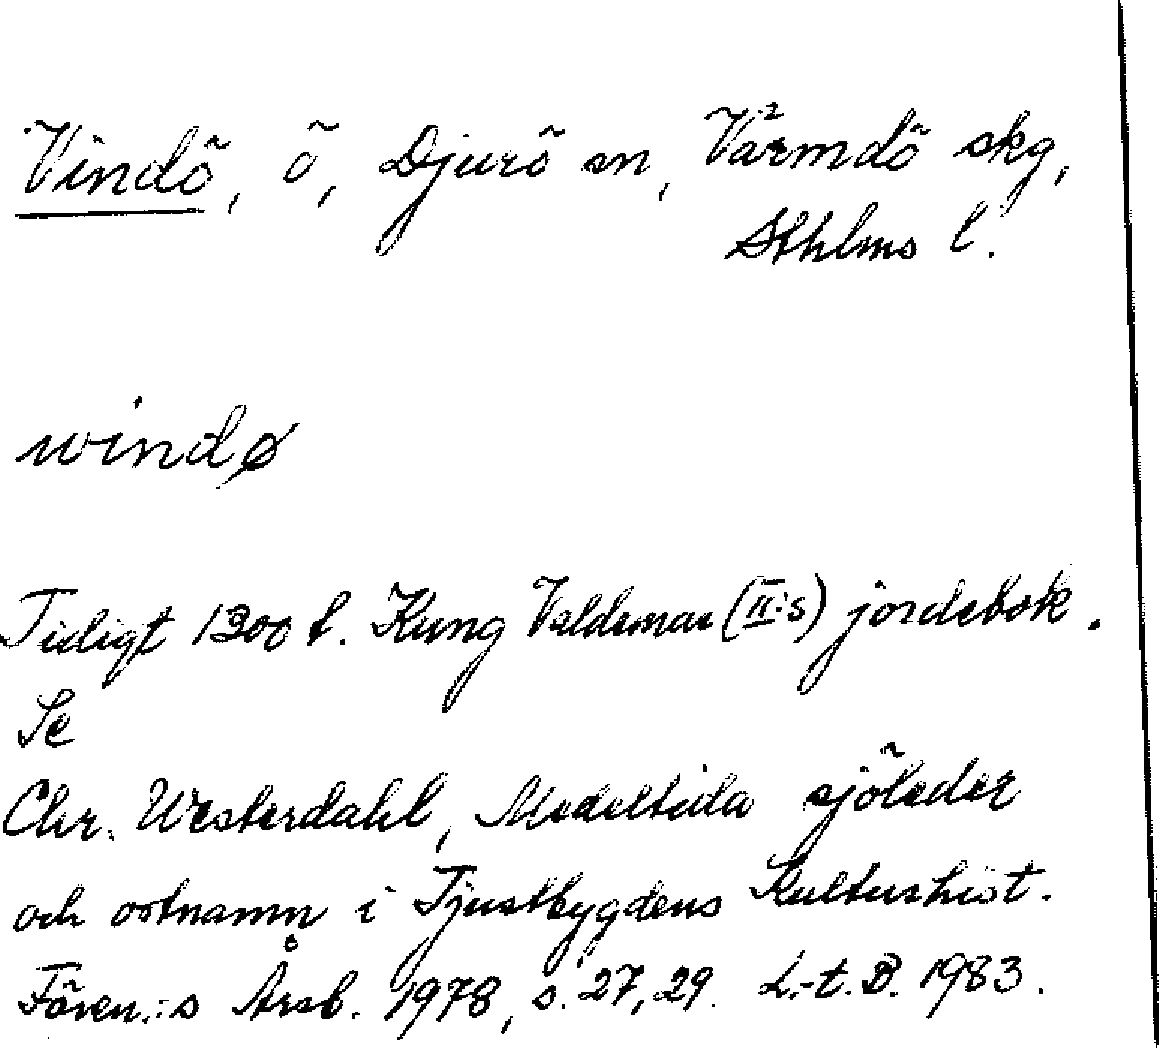 Vindö, ö, Djurö sn, Värmdö skg,
Sthlms l.
windø
Tidigt 1300 t. Kung Valdemar (II:s) jordebok.
Se
Chr. Westerdahl, Medeltida sjöleder
och ortnamn i Tjustbygdens Kulturhist.
Fören.:s Årsb. 1978, s. 27, 29. L.-t. B. 1983.